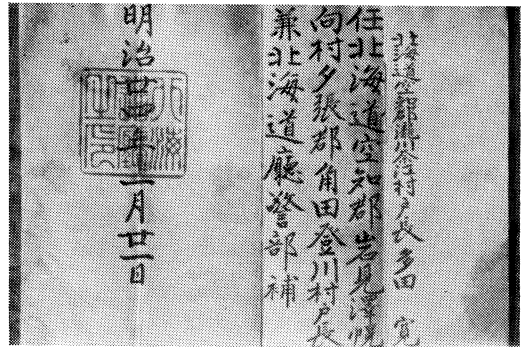 北海道空知郡瀧川奈江村戸長 多田 寛
任北海道空知郡岩見澤幌
向村夕張郡角田登川村戸長
兼北海道廳警部補
明治廿四年一月廿一日